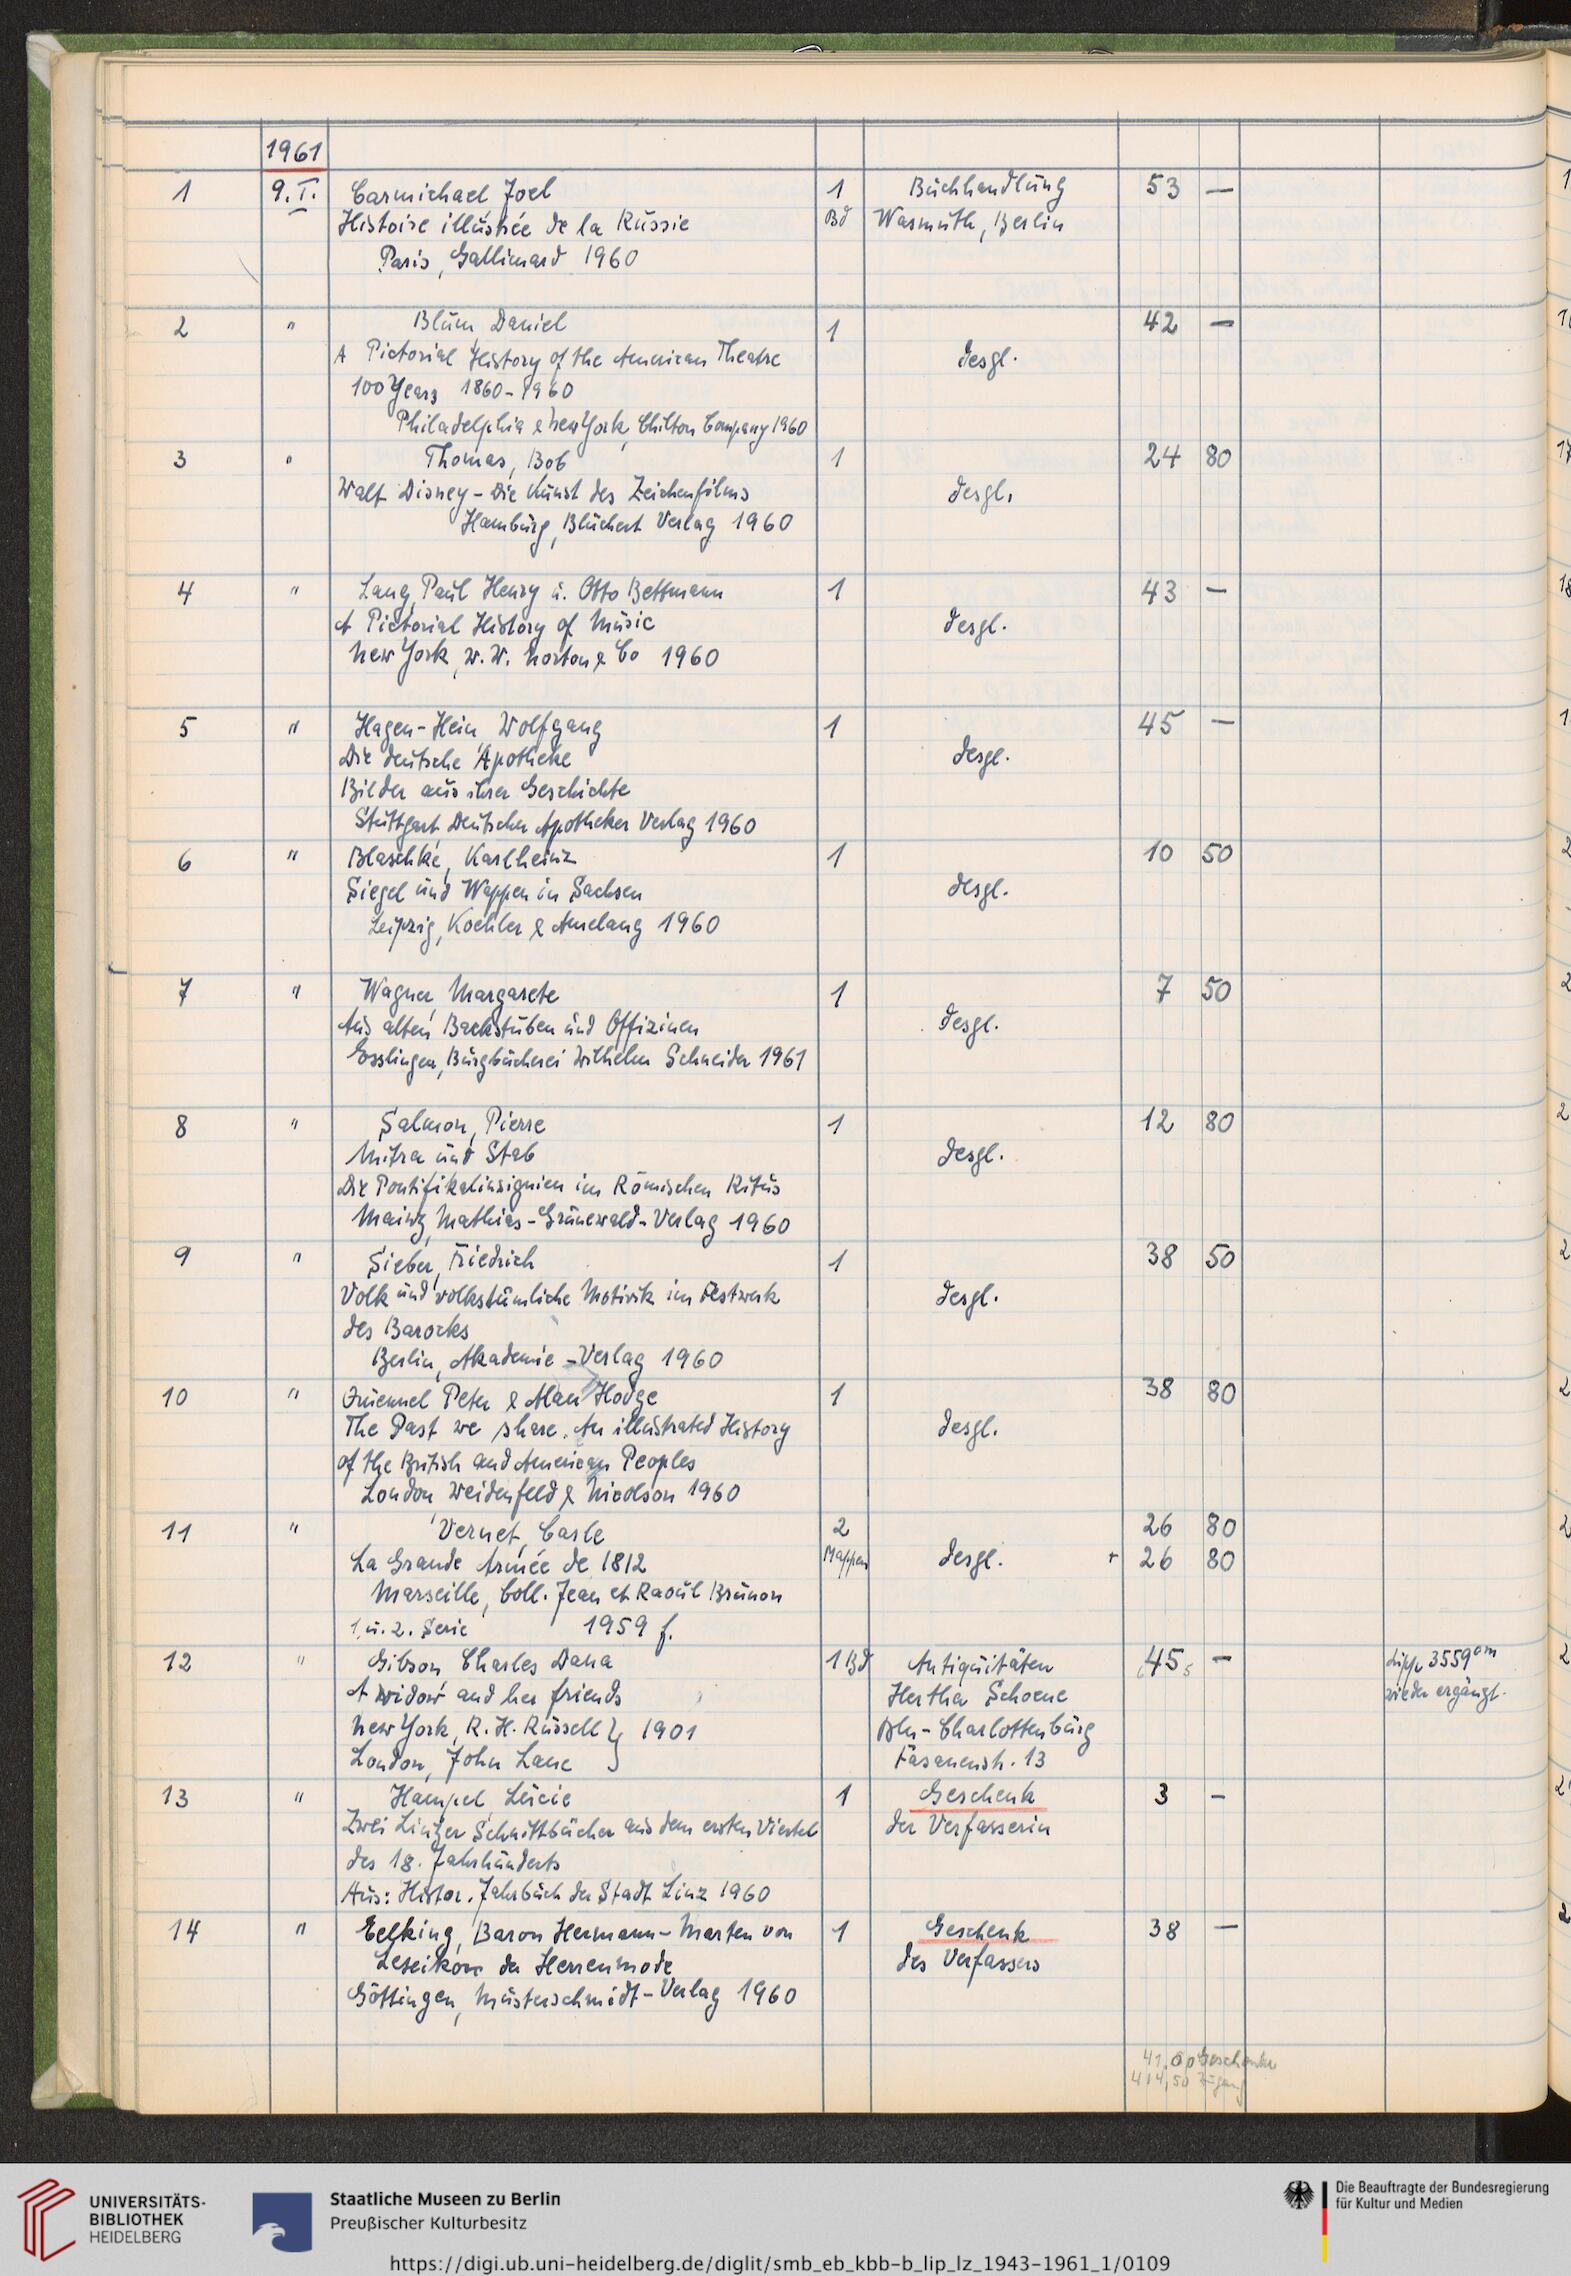 1961
1 9.I. Carmichael, Joel 1 Buchhandlung 53 —
Histoire illustrée de la Russie Bd Wasmuth, Berlin
Paris, Gallimard 1960
2 " Blum, Daniel 1 42 —
A Pictorial History of the American Theatre desgl.
100 Years 1860-1960
Philadelphia & New York, Chilton Company 1960
3 " Thomas, Bob 1 24 80
Walt Disney - Die Kunst des Zeichenfilms desgl.
Hamburg, Blüchert Verlag 1960
4 " Lang, Paul Henry u. Otto Bettmann 1 43 —
A Pictorial History of Music desgl.
New York, W. W. Norton & Co 1960
5 " Hagen-Hein, Wolfgang 1 45 —
Die deutsche Apotheke desgl.
Bilder aus ihrer Geschichte
Stuttgart, Deutscher Apotheker Verlag 1960
6 " Blaschke, Karlheinz 1 10 50
Siegel und Wappen in Sachsen desgl.
Leipzig, Koehler & Amelang 1960
7 " Wagner, Margarete 1 7 50
Aus alten Backstuben und Offizinen desgl.
Esslingen, Burgbücherei Wilhelm Schneider 1961
8 " Salmon, Pierre 1 12 80
Mitra und Stab desgl.
Die Pontifikalinsignien im Römischen Ritus
Mainz, Mathias-Grünewald-Verlag 1960
9 " Sieber, Friedrich 1 38 50
Volk und volkstümliche Motivik im Festwerk desgl.
des Barocks
Berlin, Akademie-Verlag 1960
10 " Quennel Peter & Alan Hodge 1 38 80
The Past we share. An illustrated History desgl.
of the British and American Peoples
London Weidenfeld & Nicolson 1960
11 " Vernet, Carle 2 26 80
La Grande Armée de 1812 Mappen desgl. + 26 80
Marseille, Coll. Jean et Raoul Brunon
1. u. 2. Serie 1959 f.
12 " Gibson, Charles Dana 1 Bd Antiquitäten 45 — Lipp 3559 om
A widow and her friends Hertha Schoene wieder ergänzt.
New York, R. H. Russell } 1901 Bln-Charlottenburg
London, John Lane Fasanenstr. 13
13 " Hampel, Lucie 1 Geschenk 3 —
Zwei Linzer Schnittbücher aus dem ersten Viertel der Verfasserin
des 18. Jahrhunderts
Aus: Histor. Jahrbuch der Stadt Linz 1960
14 " Eelking, Baron Hermann-Marten von 1 Geschenk 38 —
Lexikon der Herrenmode des Verfassers
Göttingen, Musterschmidt-Verlag 1960
Geschenke
414,50 Zugang
UNIVERSITÄTS-
BIBLIOTHEK
HEIDELBERG
Staatliche Museen zu Berlin
Preußischer Kulturbesitz
Die Beauftragte der Bundesregierung
für Kultur und Medien
https://digi.ub.uni-heidelberg.de/diglit/smb_eb_kbb-b_lip_lz_1943-1961_1/0109